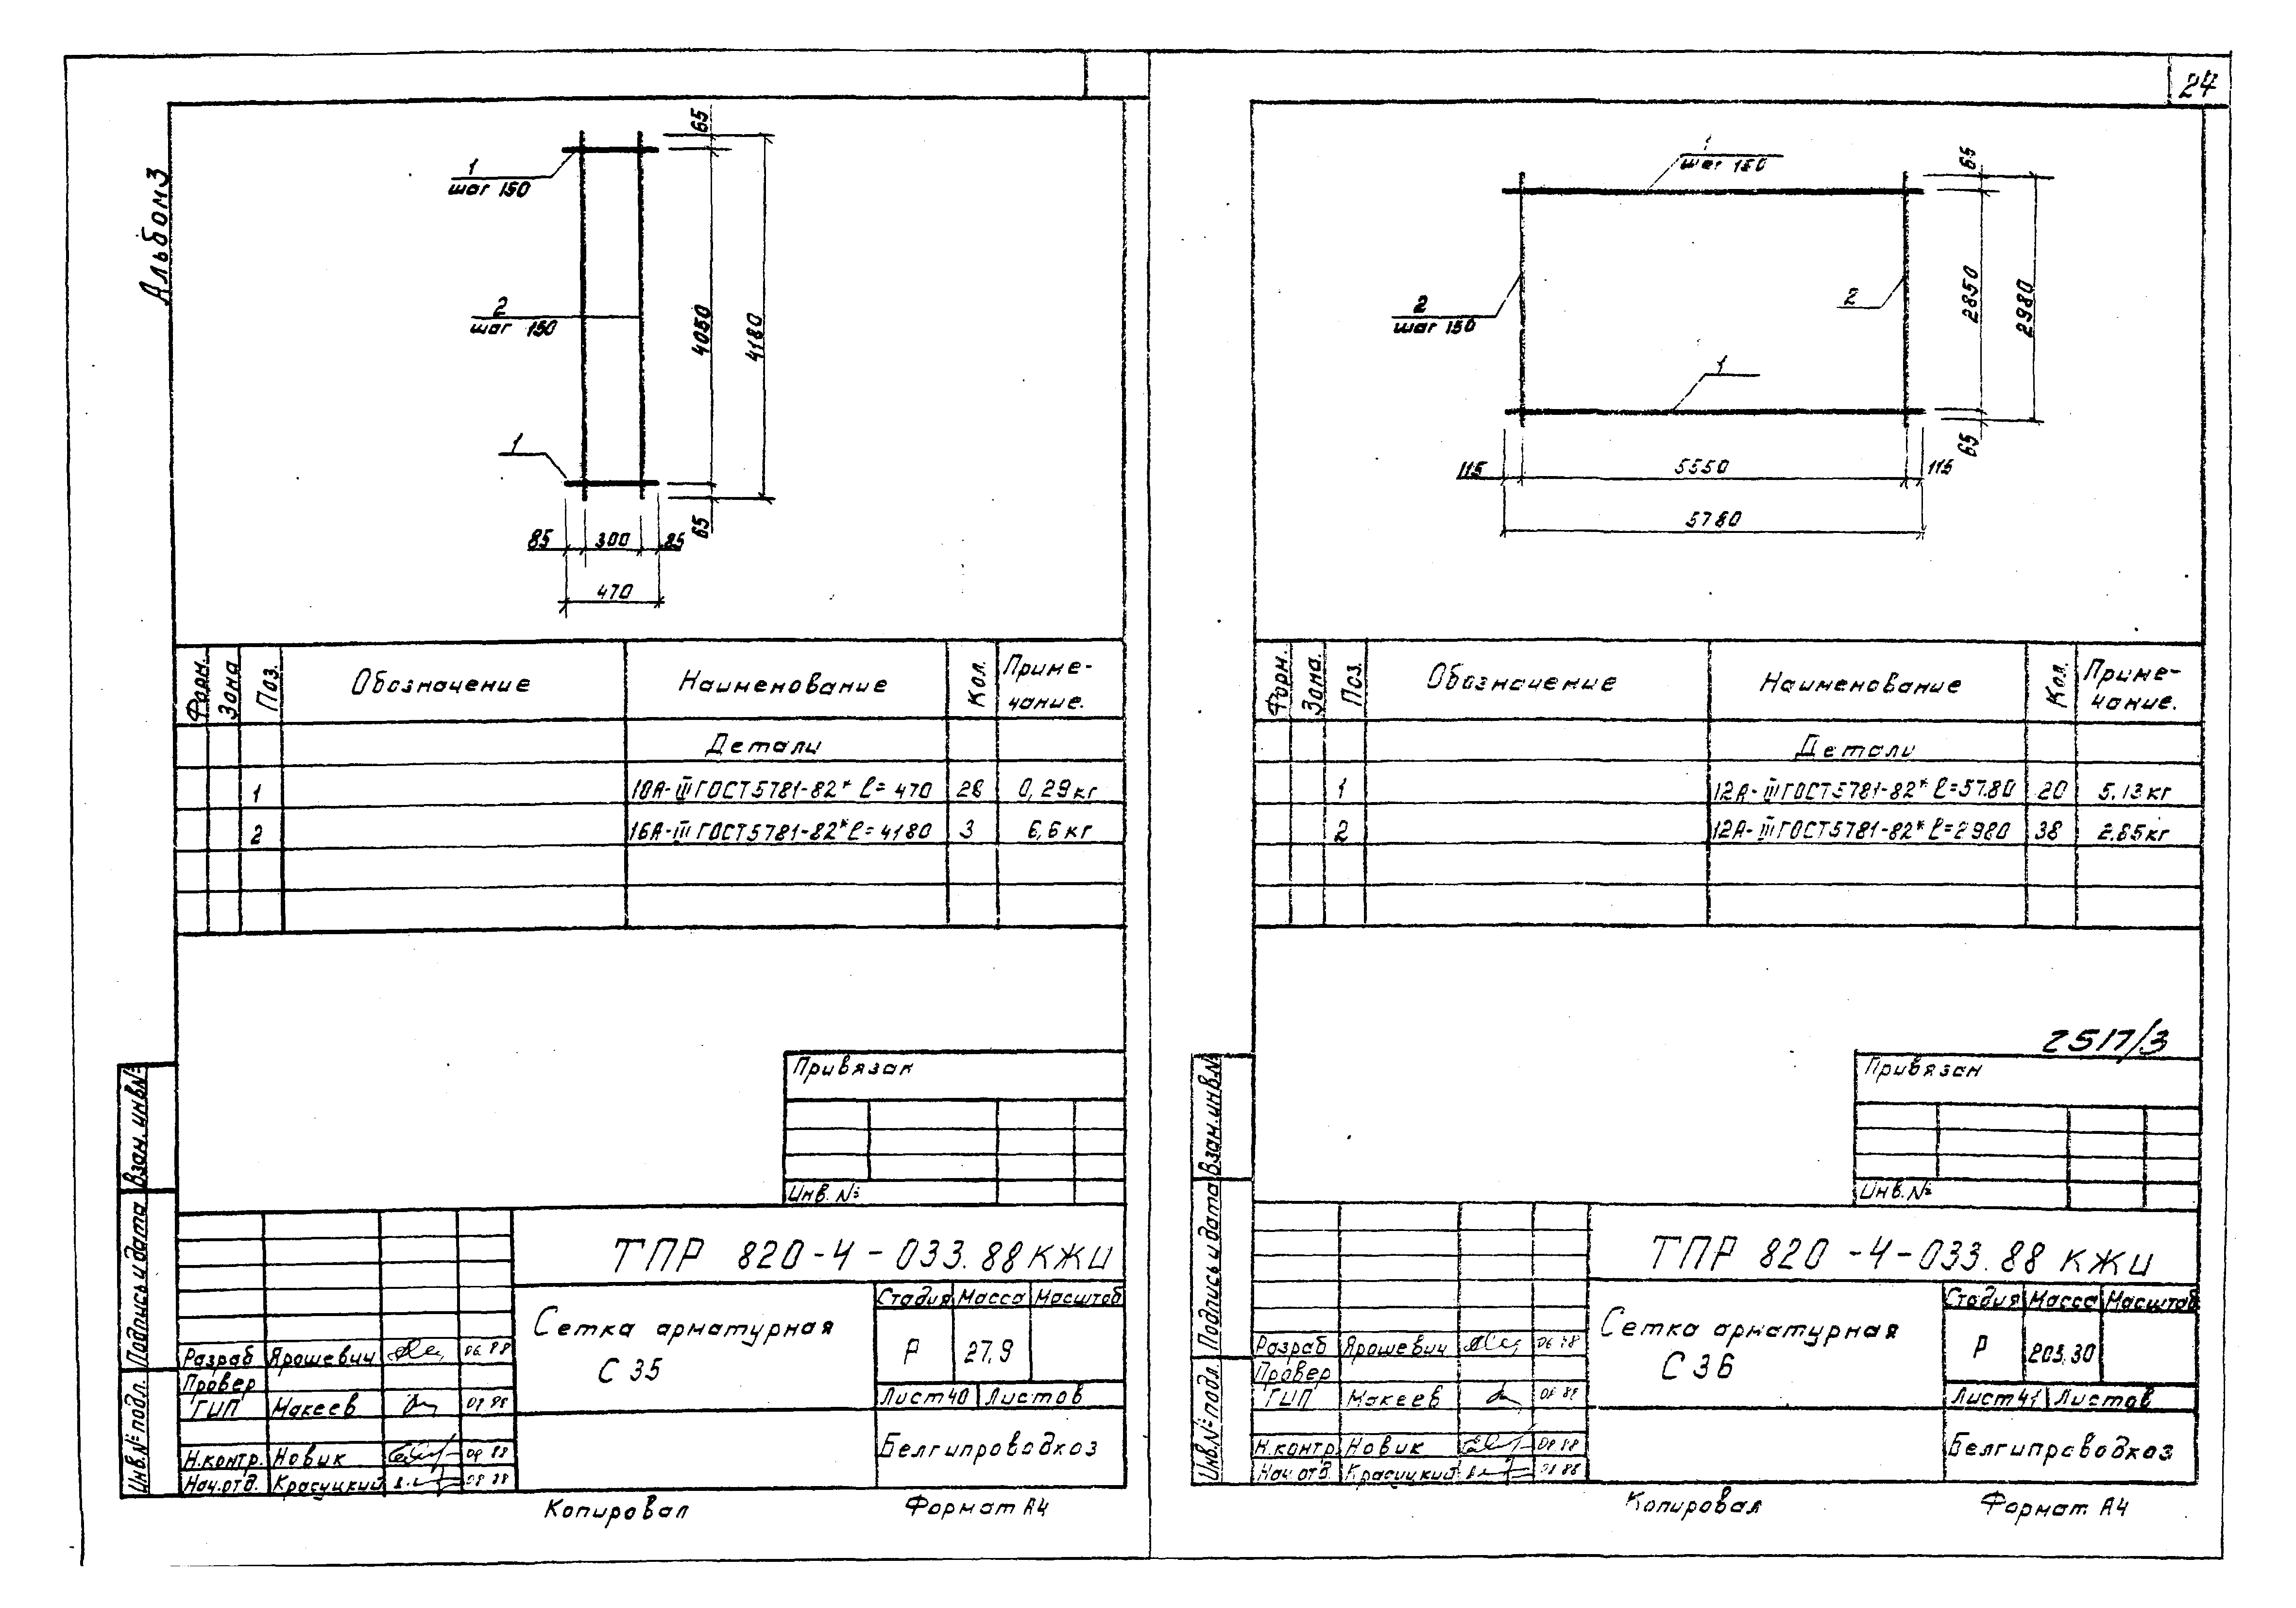 24
Альбом 3
65
1
шаг 150
2
шаг 150
4050
4180
1
65
85 300 85
470
Форм. Зона Поз. Обозначение Наименование Кол. Приме-
чание.
Детали
1 10А-III ГОСТ 5781-82* ℓ=470 28 0,29кг
2 16А-III ГОСТ 5781-82* ℓ=4180 3 6,6кг
Привязан
Инв. №
Взам. инв.№
Подпись и дата
Инв.№ подл.
ТПР 820-4-033.88 КЖИ
Сетка арматурная
С 35
Стадия Масса Масштаб
Р 27,9
Лист 40 Листов
Белгипроводхоз
Разраб Ярошевич 06.88
Провер
ГИП Макеев 08 88
Н.контр. Новик 08 88
Нач.отд. Красуцкий 08 88
Копировал Формат А4
1
шаг 150
65
2
шаг 150
2
2850
2980
1
65
115 5550 115
5780
Форм. Зона. Поз. Обозначение Наименование Кол. Приме-
чание.
Детали
1 12А-III ГОСТ 5781-82* ℓ=5780 20 5,13кг
2 12А-III ГОСТ 5781-82* ℓ=2980 38 2.65кг
2517/3
Привязан
Инв. №
Взам. инв.№
Подпись и дата
Инв.№ подл.
ТПР 820-4-033.88 КЖИ
Сетка арматурная
С 36
Стадия Масса Масштаб
Р 203,30
Лист 41 Листов
Белгипроводхоз
Разраб Ярошевич 06.88
Провер
ГИП Макеев 08 88
Н.контр. Новик 08 88
Нач.отд. Красуцкий 08 88
Копировал Формат А4